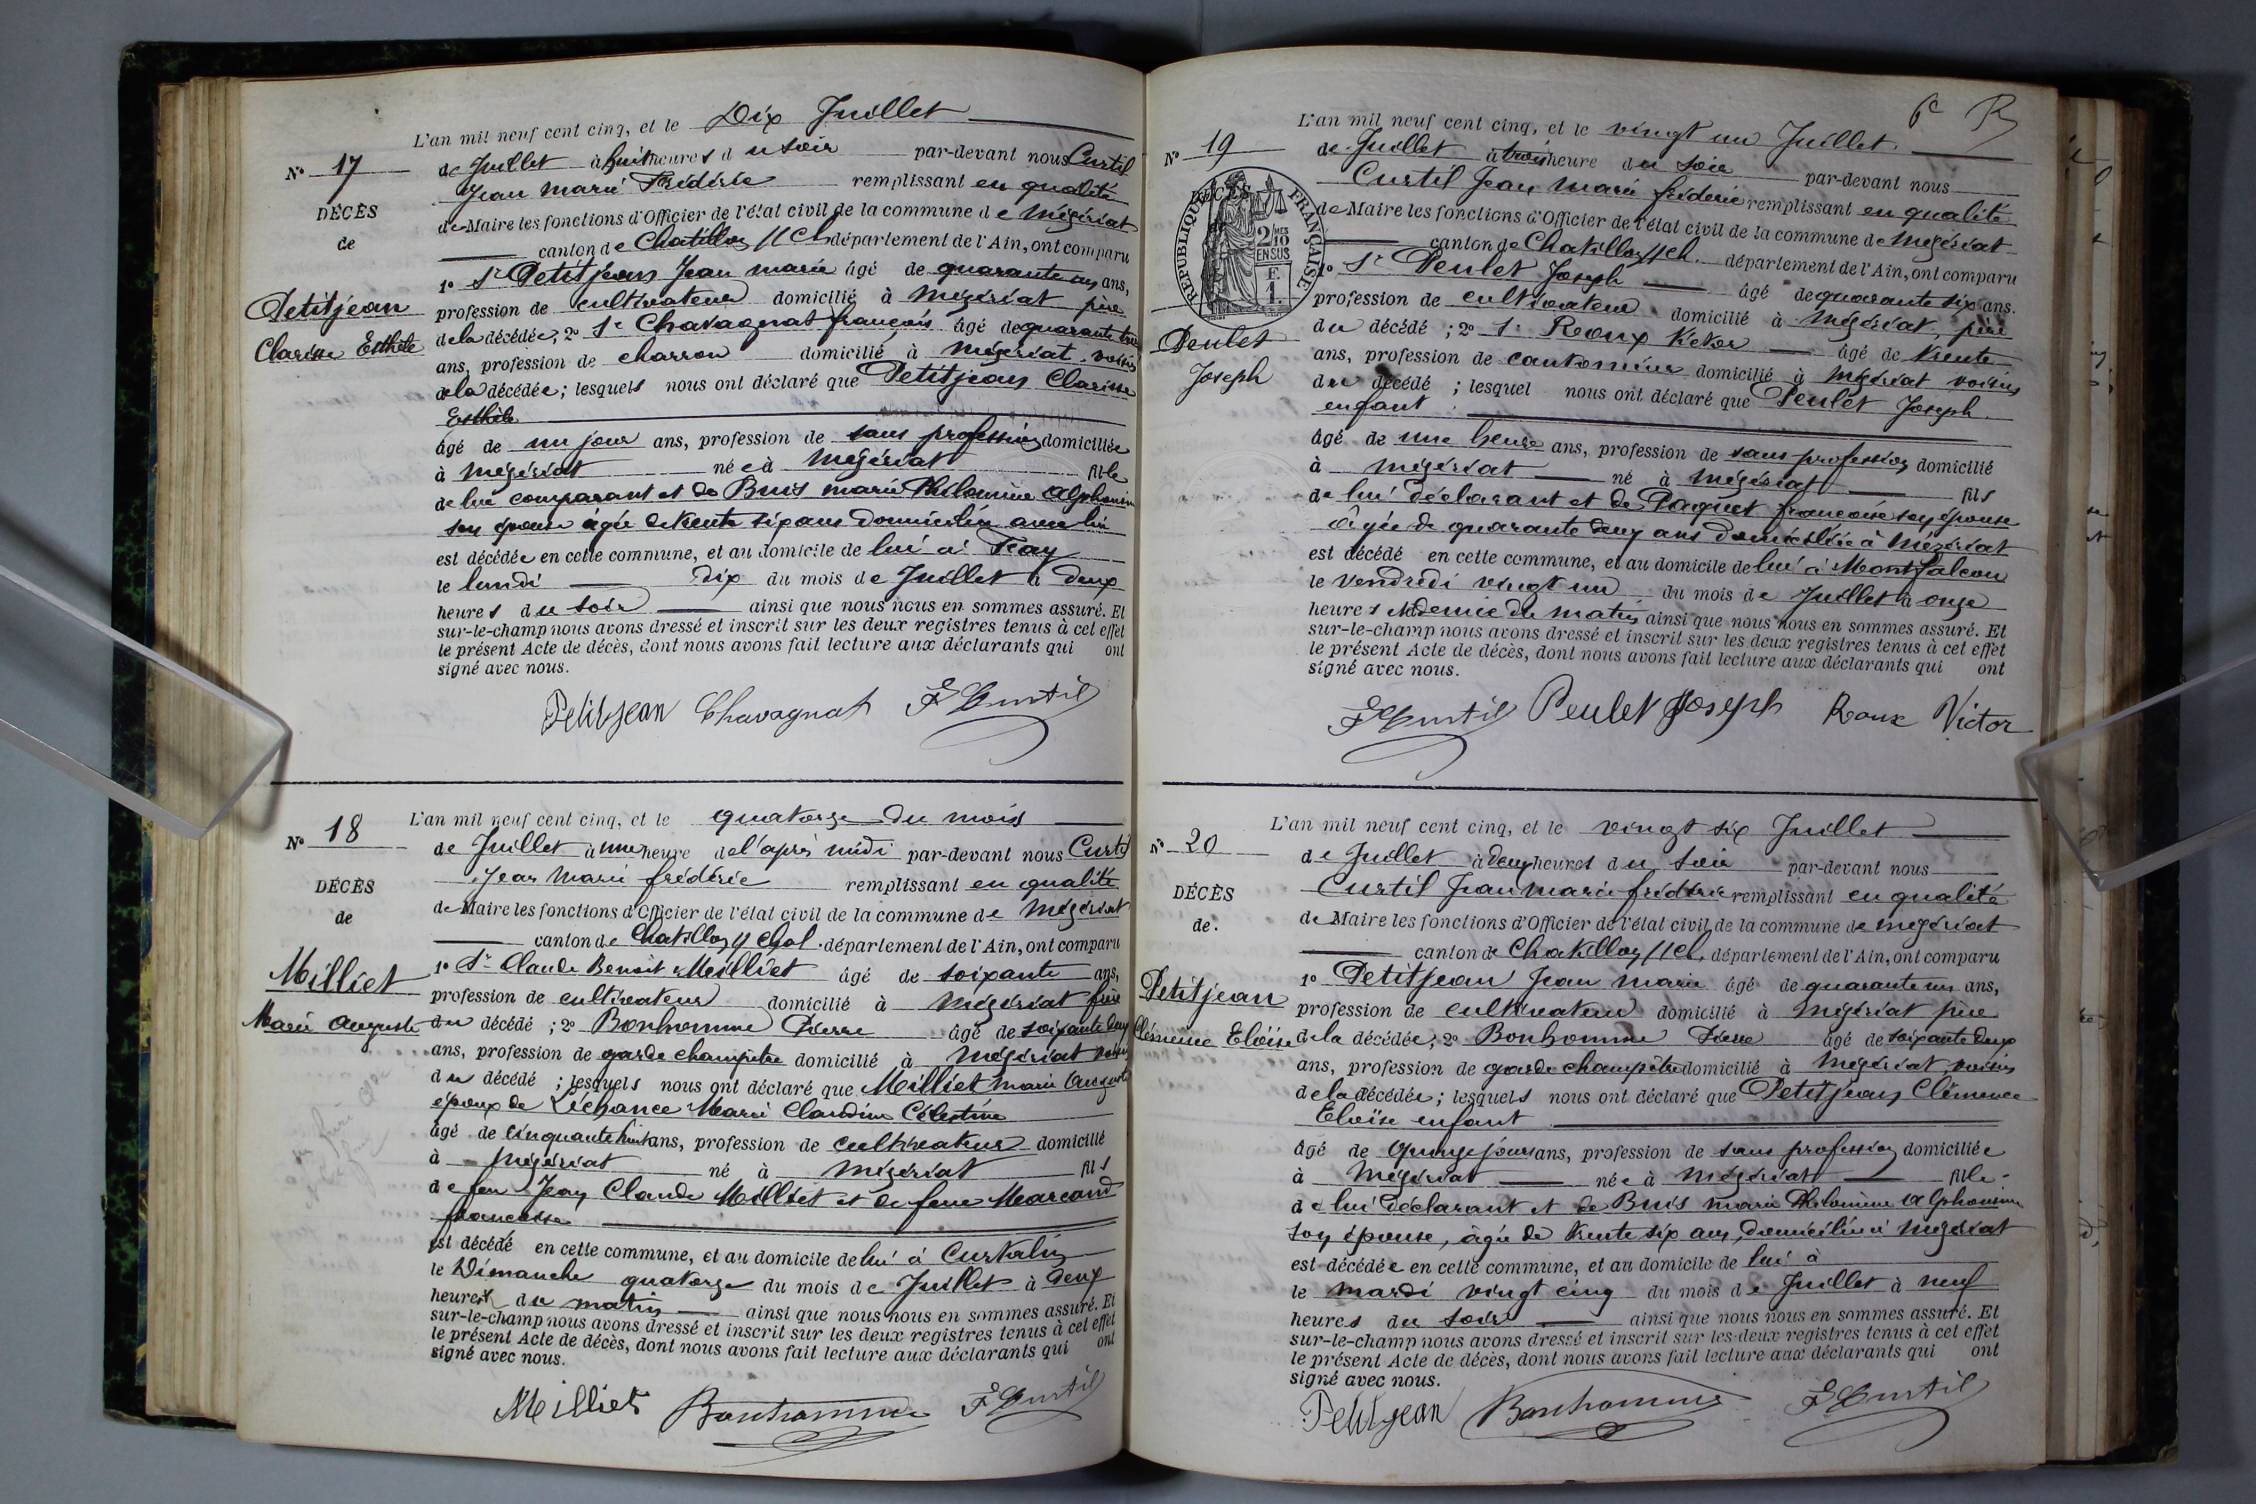 L'an mil neuf cent cinq, et le Dix Juillet
N° 17
de Juillet à huit heures du soir par-devant nous Curtil
Jean Marie Frédéric remplissant en qualité
DÉCÈS
de Maire les fonctions d'Officier de l'état civil de la commune de Mézériat
de
canton de Chatillon s/ Ch département de l'Ain, ont comparu
1° Sr Petitjean Jean Marie âgé de quarante un ans,
Petitjean
profession de cultivateur domicilié à Mézériat père
Clarisse Esthèle
de la décédée; 2° Sr Chavagnat françois âgé de quarante
ans, profession de charron domicilié à Mézériat voisin
de la décédée; lesquels nous ont déclaré que Petitjean Clarisse
Esthèle
âgé de un jour ans, profession de sans profession domiciliée
à Mézériat née à Mézériat fille
de lui comparant et de Buis Marie Philomine Alphonsine
son épouse âgée de trente six ans domiciliée avec lui
est décédée en cette commune, et au domicile de lui à
le lundi dix du mois de Juillet à deux
heures du soir ainsi que nous nous en sommes assuré. Et
sur-le-champ nous avons dressé et inscrit sur les deux registres tenus à cet effet
le présent Acte de décès, dont nous avons fait lecture aux déclarants qui ont
signé avec nous.
Petitjean Chavagnat F Curtil
L'an mil neuf cent cinq, et le quatorze du mois
N° 18
de Juillet à une heure de l'après midi par-devant nous Curtil
Jean Marie frédéric remplissant en qualité
DÉCÈS
de Maire les fonctions d'Officier de l'état civil de la commune de Mézériat
de
canton de Chatillon s/ Chal. département de l'Ain, ont comparu
Milliet
1° Sr Claude Benoit Milliet âgé de soixante ans,
profession de cultivateur domicilié à Mézériat frère
Marie Auguste
du décédé; 2° Bonhomme Pierre âgé de soixante deux
ans, profession de garde champêtre domicilié à Mézériat voisin
du décédé; lesquels nous ont déclaré que Milliet Marie Auguste
époux de Léchance Marie Claudine Célestine
âgé de cinquante huit ans, profession de cultivateur domicilié
à Mézériat né à Mézériat fils
de feu Jean Claude Milliet et de feue Marcand
francoise
est décédé en cette commune, et au domicile de lui à Curtalin
le Dimanche quatorze du mois de Juillet à deux
heures du matin ainsi que nous nous en sommes assuré. Et
sur-le-champ nous avons dressé et inscrit sur les deux registres tenus à cet effet
le présent Acte de décès, dont nous avons fait lecture aux déclarants qui ont
signé avec nous.
Milliet Bonhomme F Curtil
6e R
L'an mil neuf cent cinq, et le vingt un Juillet.
N° 19
de Juillet à trois heure du soir par-devant nous
Curtil Jean Marie frédéric remplissant en qualité
RÉPUBLIQUE FRANÇAISE
2 MES 10 EN SUS
F. 1.
de Maire les fonctions d'Officier de l'état civil de la commune de Mézériat
canton de Chatillon s/ Ch. département de l'Ain, ont comparu
1° Sr Peulet Joseph âgé de quarante six ans.
profession de cultivateur domicilié à Mézériat, père
Peulet
Joseph
du décédé; 2° Sr Roux Victor âgé de trente
ans, profession de cantonnier domicilié à Mézériat voisin
du décédé; lesquel nous ont déclaré que Peulet Joseph
enfant
âgé de une heure ans, profession de sans profession domicilié
à Mézériat né à Mézériat fils
de lui déclarant et de Paquet françoise son épouse
âgée de quarante deux ans domiciliée à Mézériat
est décédé en cette commune, et au domicile de lui à Montfalcon
le vendredi vingt un du mois de Juillet à onze
heures et demie du matin ainsi que nous nous en sommes assuré. Et
sur-le-champ nous avons dressé et inscrit sur les deux registres tenus à cet effet
le présent Acte de décès, dont nous avons fait lecture aux déclarants qui ont
signé avec nous.
F Curtil Peulet Joseph Roux Victor
L'an mil neuf cent cinq, et le vingt six Juillet
N° 20
de Juillet à deux heures du soir par-devant nous
Curtil Jean Marie frédéric remplissant en qualité
DÉCÈS
de Maire les fonctions d'Officier de l'état civil de la commune de Mézériat
de
canton de Chatillon s/ Ch. département de l'Ain, ont comparu
1° Petitjean Jean Marie âgé de quarante un ans,
Petitjean
profession de cultivateur domicilié à Mézériat père
Clémence Eloïse
de la décédée; 2° Bonhomme Pierre âgé de soixante deux
ans, profession de garde champêtre domicilié à Mézériat, voisin
de la décédée; lesquels nous ont déclaré que Petitjean Clémence
Eloïse enfant
âgé de quinze jours ans, profession de sans profession domiciliée
à Mézériat née à Mézériat fille
de lui déclarant et de Buis Marie Philomine Alphonsine
son épouse, âgée de trente six ans, domiciliée à Mézériat
est décédée en cette commune, et au domicile de lui à
le mardi vingt cinq du mois de Juillet à neuf
heures du soir ainsi que nous nous en sommes assuré. Et
sur-le-champ nous avons dressé et inscrit sur les deux registres tenus à cet effet
le présent Acte de décès, dont nous avons fait lecture aux déclarants qui ont
signé avec nous.
Petitjean Bonhomme F Curtil